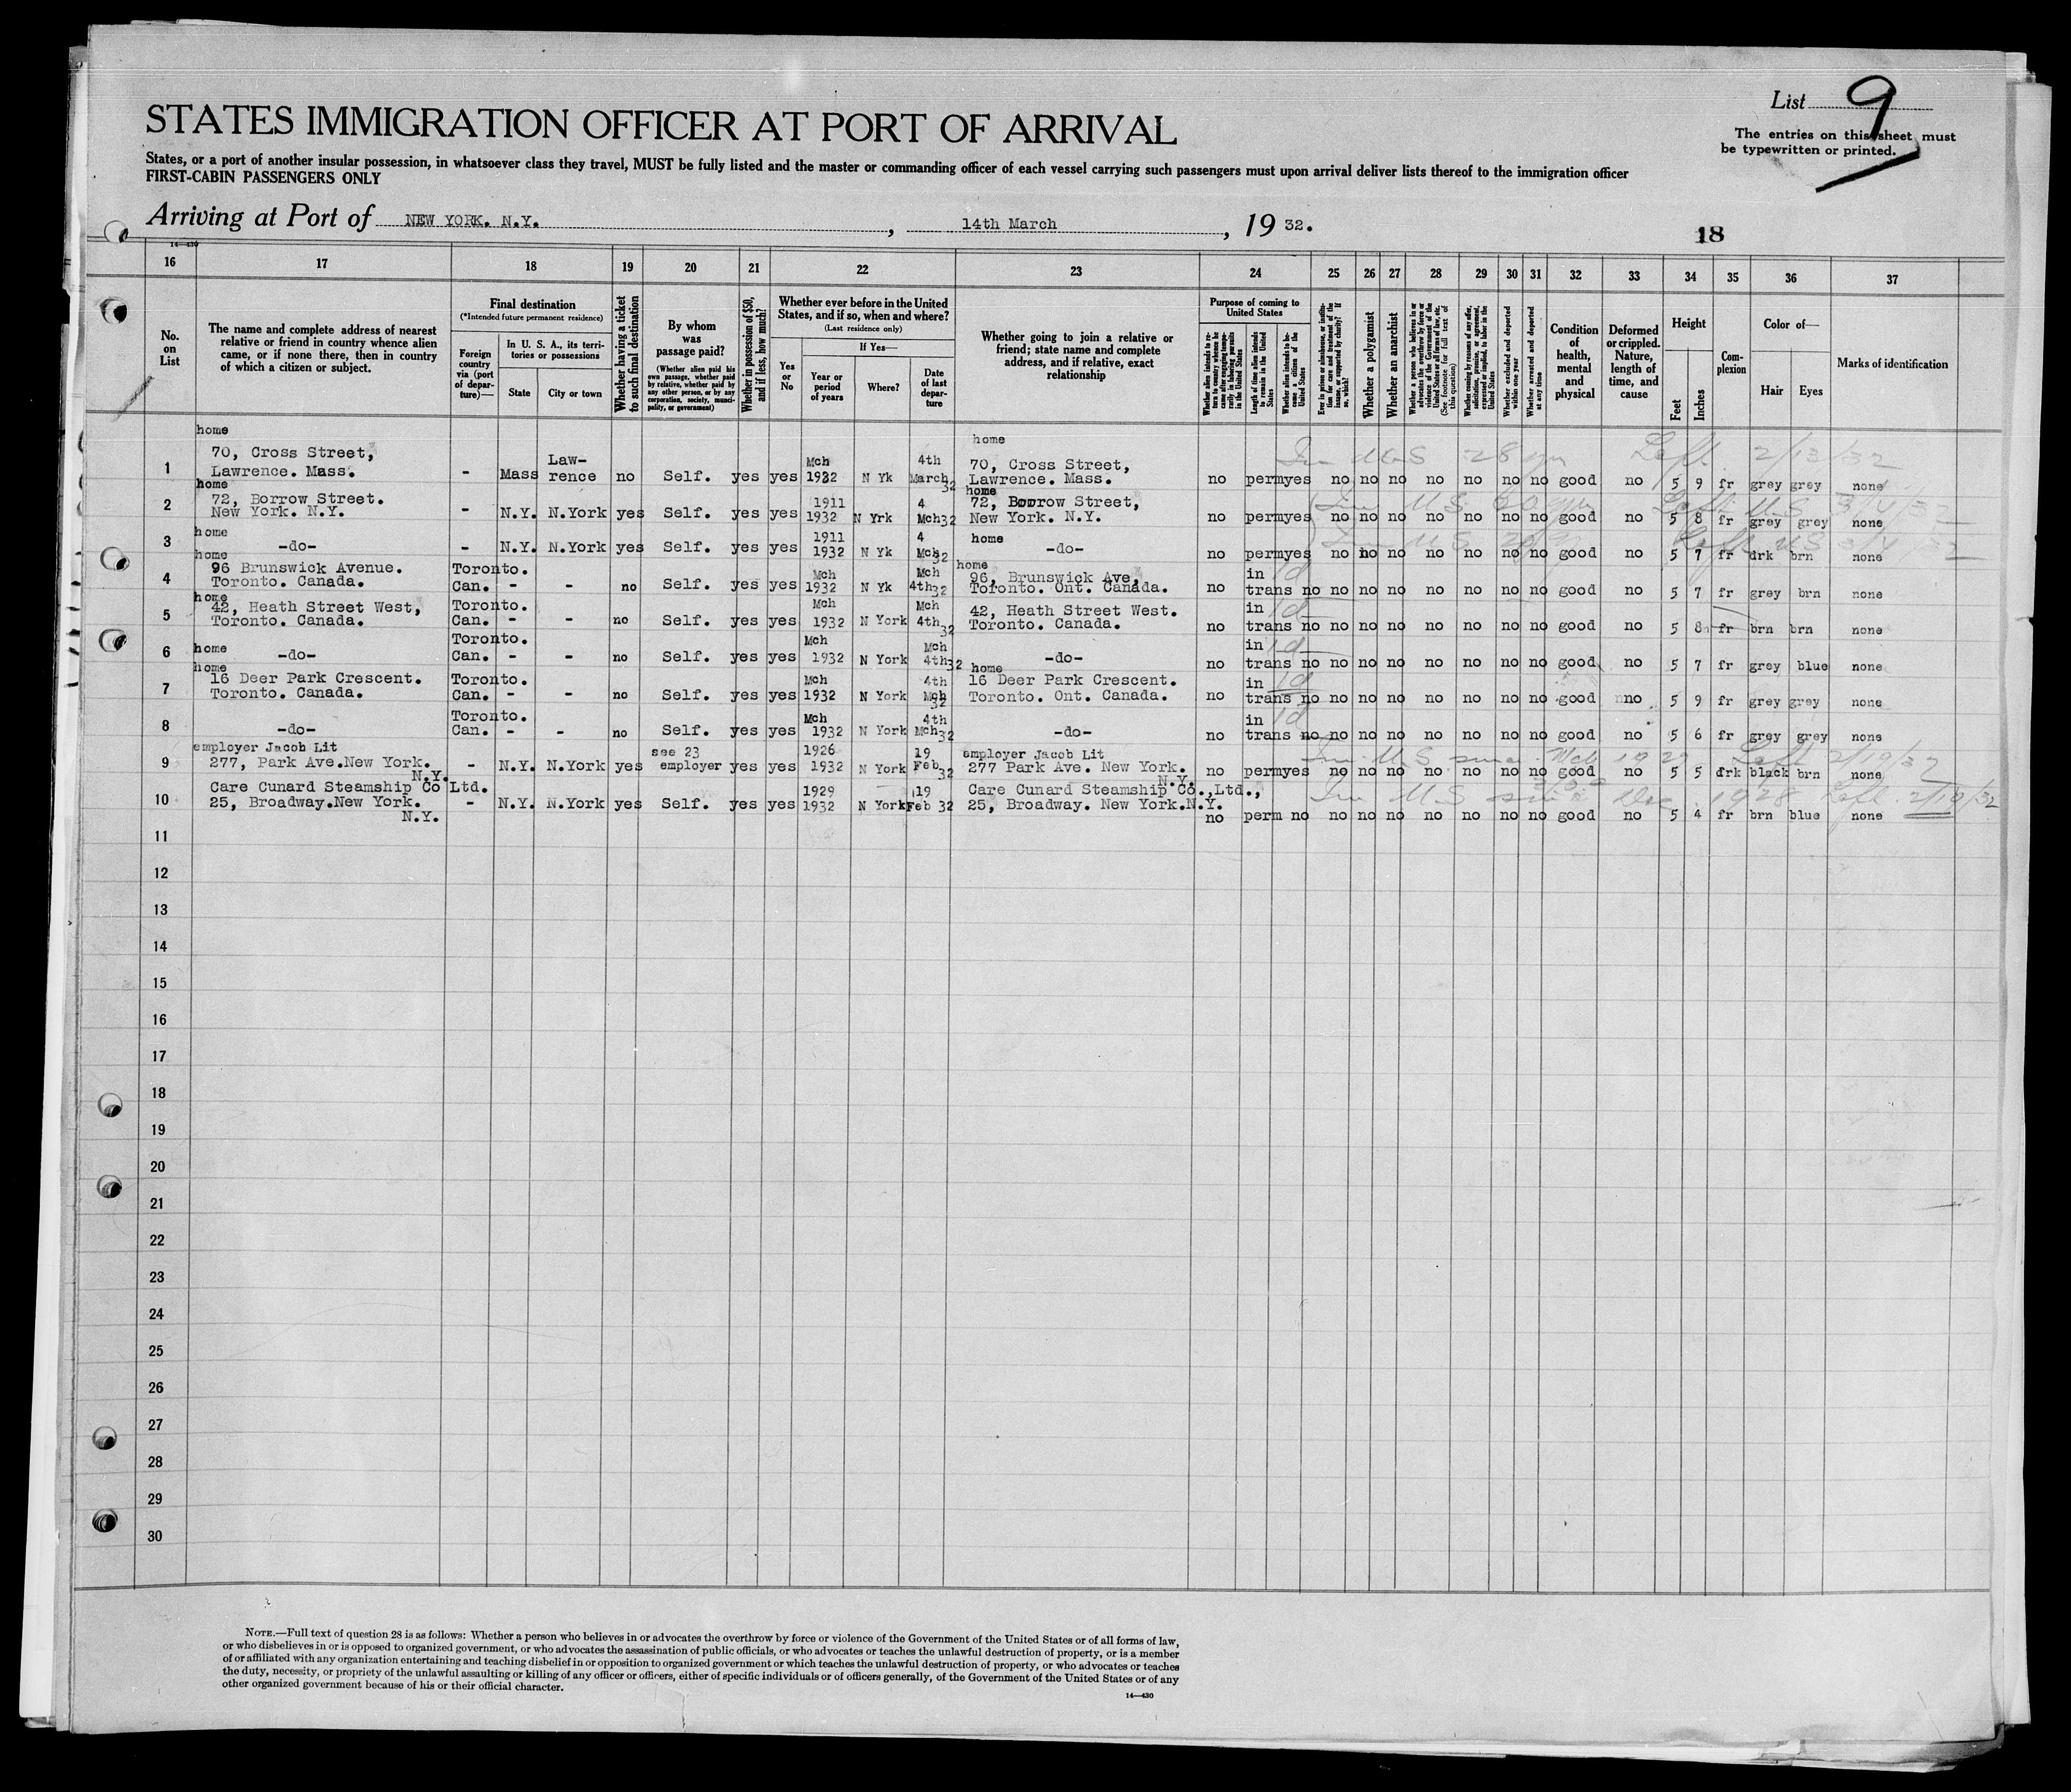 List 9
The entries on this sheet must
be typewritten or printed.
STATES IMMIGRATION OFFICER AT PORT OF ARRIVAL
States, or a port of another insular possession, in whatsoever class they travel, MUST be fully listed and the master or commanding officer of each vessel carrying such passengers must upon arrival deliver lists thereof to the immigration officer
FIRST-CABIN PASSENGERS ONLY
Arriving at Port of NEW YORK. N.Y. , 14th March , 19 32.
18
14—430
16 17 18 19 20 21 22 23 24 25 26 27 28 29 30 31 32 33 34 35 36 37
No. on List
The name and complete address of nearest relative or friend in country whence alien came, or if none there, then in country of which a citizen or subject.
Final destination
(*Intended future permanent residence)
Foreign country via (port of departure)—
In U. S. A., its territories or possessions
State
City or town
Whether having a ticket to such final destination
By whom was passage paid?
(Whether alien paid his own passage, whether paid by relative, whether paid by any other person, or by any corporation, society, municipality, or government)
Whether in possession of $50, and if less, how much?
Whether ever before in the United States, and if so, when and where?
(Last residence only)
Yes or No
If Yes—
Year or period of years
Where?
Date of last departure
Whether going to join a relative or friend; state name and complete address, and if relative, exact relationship
Purpose of coming to United States
Length of time alien intends to remain in the United States
Whether alien intends to become a citizen of the United States
Whether a polygamist
Whether an anarchist
Whether excluded and deported within one year
Whether arrested and deported at any time
Condition of health, mental and physical
Deformed or crippled. Nature, length of time, and cause
Height
Feet
Inches
Complexion
Color of—
Hair
Eyes
Marks of identification
home home In U.S 28 yrs Left 2/13/32
1 70, Cross Street, Lawrence. Mass. - Mass Lawrence no Self. yes yes Mch 1932 N Yk 4th March 32 70, Cross Street, Lawrence. Mass. no perm yes no no no no no no no good no 5 9 fr grey grey none
home home In U.S Left U.S 3/4/32
2 72, Borrow Street. New York. N.Y. - N.Y. N.York yes Self. yes yes 1911 1932 N Yrk 4 Mch 32 72, Borrow Street, New York. N.Y. no perm yes no no no no no no no good no 5 8 fr grey grey none
home home In U.S Left US 3/4/32
3 -do- - N.Y. N.York yes Self. yes yes 1911 1932 N Yk 4 Mch 32 -do- no perm yes no no no no no no no good no 5 7 fr drk brn none
home home
4 96 Brunswick Avenue. Toronto. Canada. Toronto. Can. - - no Self. yes yes Mch 1932 N Yk Mch 4th 32 96, Brunswick Ave, Toronto. Ont. Canada. no in trans 1d no no no no no no no no good no 5 7 fr grey brn none
home
5 42, Heath Street West, Toronto. Canada. Toronto. Can. - - no Self. yes yes Mch 1932 N York Mch 4th 32 42, Heath Street West. Toronto. Canada. no in trans 1d no no no no no no no no good no 5 8 fr brn brn none
home
6 -do- Toronto. Can. - - no Self. yes yes Mch 1932 N York Mch 4th 32 -do- no in trans 1d no no no no no no no no good no 5 7 fr grey blue none
home home
7 16 Deer Park Crescent. Toronto. Canada. Toronto. Can. - - no Self. yes yes Mch 1932 N York 4th Mch 32 16 Deer Park Crescent. Toronto. Ont. Canada. no in trans 1d no no no no no no no no good no 5 9 fr grey grey none
8 -do- Toronto. Can. - - no Self. yes yes Mch 1932 N York 4th Mch 32 -do- no in trans 1d no no no no no no no no good no 5 6 fr grey grey none
employer Jacob Lit see 23 employer Jacob Lit In U.S since Mch Left 2/19/32
9 277, Park Ave.New York. N.Y. - N.Y. N.York yes employer yes yes 1926 1932 N York 19 Feb 32 277 Park Ave. New York. N.Y. no perm yes no no no no no no no good no 5 5 drk black brn none
In U.S since Dec. 1928 Left 2/19/32
10 Care Cunard Steamship Co Ltd. 25, Broadway.New York. N.Y. - N.Y. N.York yes Self. yes yes 1929 1932 N York 19 Feb 32 Care Cunard Steamship Co.,Ltd., 25, Broadway. New York.N.Y. no perm no no no no no no no no good no 5 4 fr brn blue none
11
12
13
14
15
16
17
18
19
20
21
22
23
24
25
26
27
28
29
30
NOTE.—Full text of question 28 is as follows: Whether a person who believes in or advocates the overthrow by force or violence of the Government of the United States or of all forms of law,
or who disbelieves in or is opposed to organized government, or who advocates the assassination of public officials, or who advocates or teaches the unlawful destruction of property, or is a member
of or affiliated with any organization entertaining and teaching disbelief in or opposition to organized government or which teaches the unlawful destruction of property, or who advocates or teaches
the duty, necessity, or propriety of the unlawful assaulting or killing of any officer or officers, either of specific individuals or of officers generally, of the Government of the United States or of any
other organized government because of his or their official character.
14—430